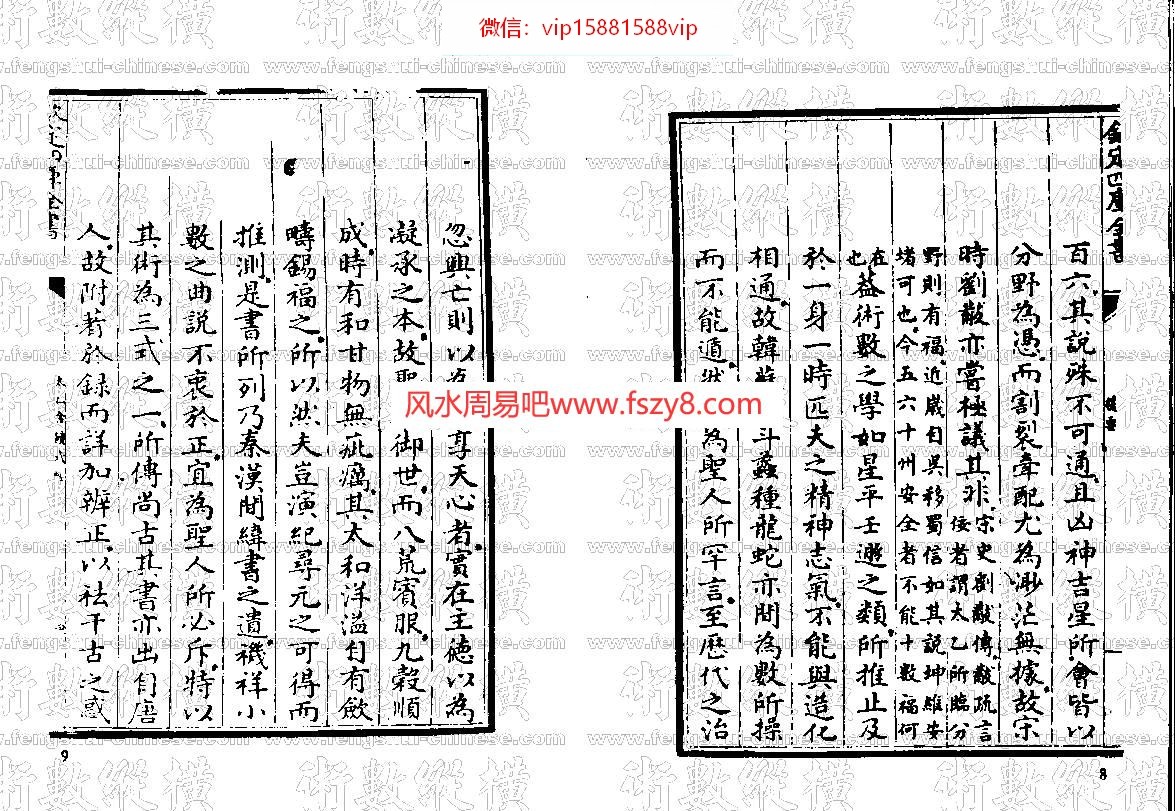 微信：vip15881588vip
欽定四庫全書
提要
百六其說殊不可通且凶神吉星所會皆以
分野為憑而割裂牽配尤為渺茫無據故宋
時劉黻亦嘗極議其非宋史劉黻傳黻疏言佞者謂太乙所臨分
野則有福近歲自吳移蜀信如其說坤維安堵可也今五六十州安全者不能十數福何
在也蓋術數之學如星平壬遯之類所推止及
於一身一時匹夫之精神志氣不能與造化
相通故韓 斗蠡種龍蛇亦間為數所操
而不能遁 為聖人所罕言至歷代之治
8
忽興亡則以 享天心者實在主德以為
凝承之本故 御世而八荒賓服九穀順
成時有和甘物無疵癘其太和洋溢自有斂
疇錫福之所以然夫豈演紀尋元之可得而
推測是書所列乃秦漢間緯書之遺禨祥小
數之曲說不衷於正宜為聖人所必斥特以
其術為三式之一所傳尚古其書亦出自唐
人故附著於錄而詳加辨正以袪千古之惑
欽定四庫全書
9
风水周易吧www.fszy8.com
術數縱橫
www.fengshui-chinese.com